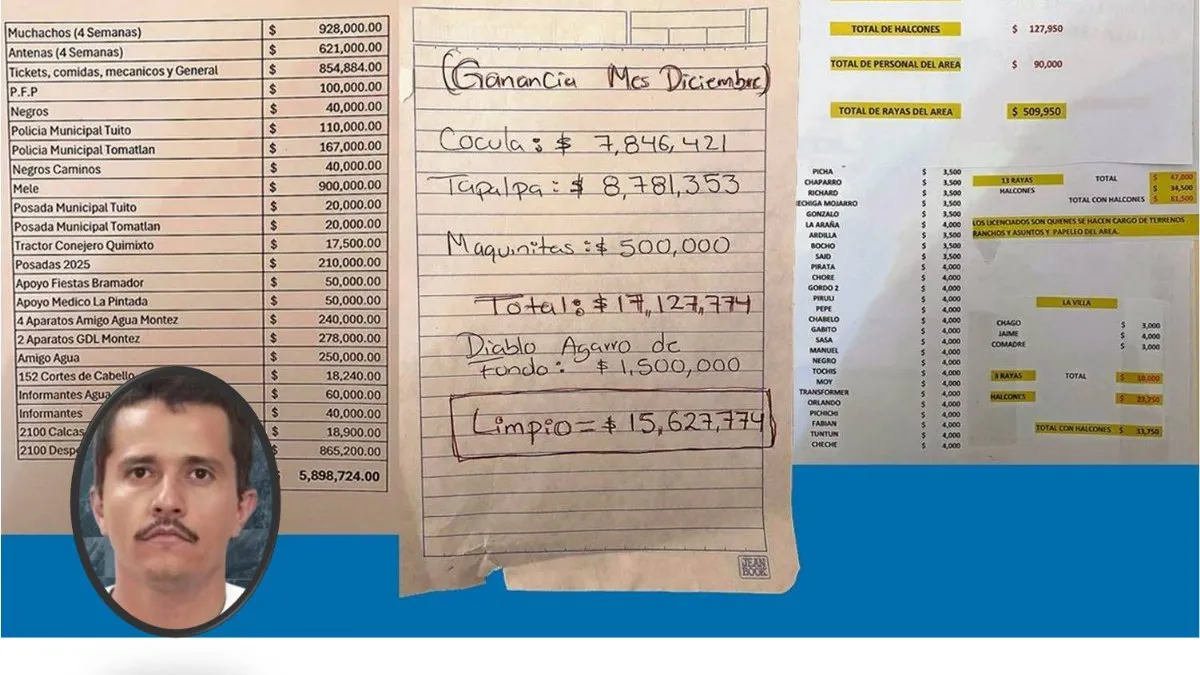 Muchachos (4 Semanas) $ 928,000.00
Antenas (4 Semanas) $ 621,000.00
Tickets, comidas, mecanicos y General $ 854,884.00
P.F.P $ 100,000.00
Negros $ 40,000.00
Policia Municipal Tuito $ 110,000.00
Policia Municipal Tomatlan $ 167,000.00
Negros Caminos $ 40,000.00
Mele $ 900,000.00
Posada Municipal Tuito $ 20,000.00
Posada Municipal Tomatlan $ 20,000.00
Tractor Conejero Quimixto $ 17,500.00
Posadas 2025 $ 210,000.00
Apoyo Fiestas Bramador $ 50,000.00
Apoyo Medico La Pintada $ 50,000.00
4 Aparatos Amigo Agua Montez $ 240,000.00
2 Aparatos GDL Montez $ 278,000.00
Amigo Agua $ 250,000.00
152 Cortes de Cabello $ 18,240.00
Informantes Agua $ 60,000.00
Informantes $ 40,000.00
2100 Calcas $ 18,900.00
2100 Desp $ 865,200.00
5,898,724.00
(Ganancia Mes Diciembre)
Cocula: $ 7,846,421
Tapalpa: $ 8,781,353
Maquinitas: $ 500,000
Total: $ 17,127,774
Diablo Agarro de
fundo: $ 1,500,000
Limpio = $ 15,627,774
JEAN
BOOK
TOTAL DE HALCONES $ 127,950
TOTAL DE PERSONAL DEL AREA $ 90,000
TOTAL DE RAYAS DEL AREA $ 509,950
PICHA $ 3,500
CHAPARRO $ 3,500
RICHARD $ 3,500
ECHIGA MOJARRO $ 3,500
GONZALO $ 3,500
LA ARAÑA $ 4,000
ARDILLA $ 3,500
BOCHO $ 3,500
SAID $ 3,500
PIRATA $ 4,000
CHORE $ 4,000
GORDO 2 $ 4,000
PIRULI $ 4,000
PEPE $ 4,000
CHABELO $ 4,000
GABITO $ 4,000
SASA $ 4,000
MANUEL $ 4,000
NEGRO $ 4,000
TOCHIS $ 4,000
MOY $ 4,000
TRANSFORMER $ 4,000
ORLANDO $ 4,000
PICHICHI $ 4,000
FABIAN $ 4,000
TUNTUN $ 4,000
CHECHE $ 4,000
13 RAYAS TOTAL $ 47,000
HALCONES $ 34,500
TOTAL CON HALCONES $ 81,500
LOS LICENCIADOS SON QUIENES SE HACEN CARGO DE TERRENOS
RANCHOS Y ASUNTOS Y PAPELEO DEL AREA.
LA VILLA
CHAGO $ 3,000
JAIME $ 4,000
COMADRE $ 3,000
3 RAYAS TOTAL $ 10,000
HALCONES $ 23,750
TOTAL CON HALCONES $ 33,750